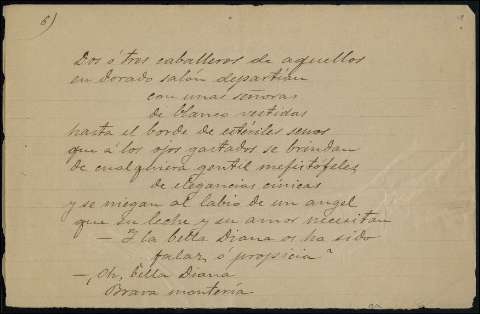 6)
Dos ó tres caballeros de aquellos
en dorado salón departían
con unas señoras
de blanco vestidas
hasta el borde de estériles senos
que á los ojos gastados se brindan
de cualquiera gentil mefistofeles
de elegancias cínicas
y se niegan al labio de un angel
que su leche y su amor necesitan
— Y la bella Diana os ha sido
falaz, ó propicia?
—¡Oh, bella Diana
Brava montería